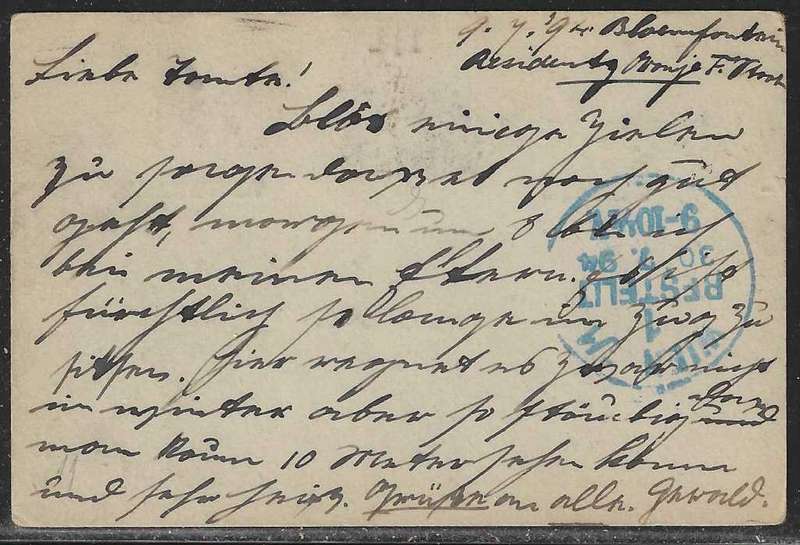 9. 7. 94. Bloemfontein
Residents Oranje F. Staat
Liebe Tante!
Blos einige Zielen
zu sagen dass es noch gut
geht, morgen um 8 bin ich
bei meinen Eltern. es ist
fürchtlich so lange im Zug zu
sitzen. Hier regnet es zwar nicht
im Winter aber so staubig dass
man kaum 10 Meter sehen kann
und sehr heiss. Grüsse an alle. Gewald.
WIEN
1
BESTELLT
30. 7. 94
9-10½V